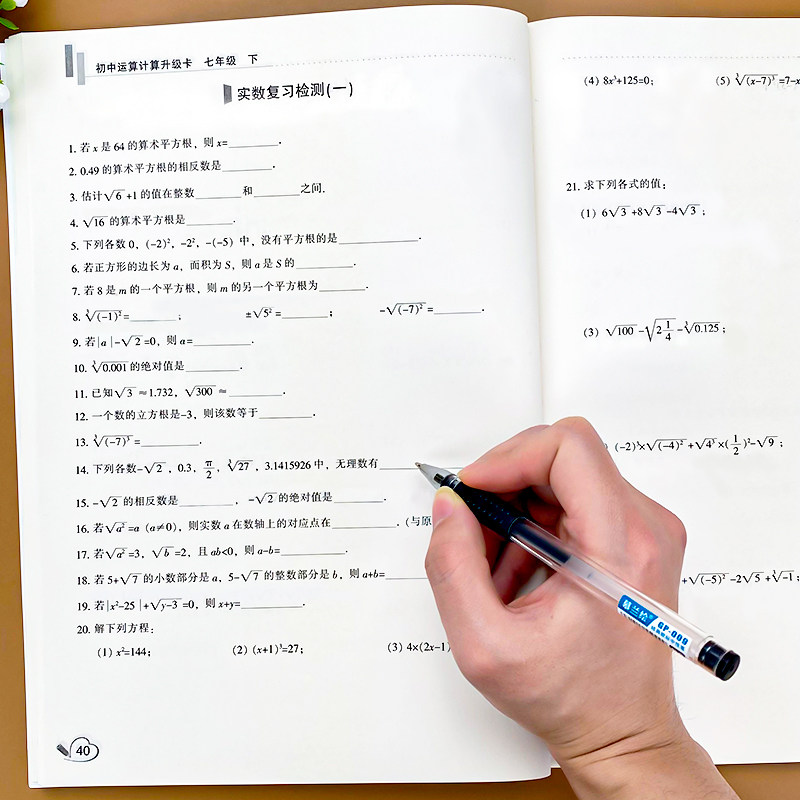 初中运算计算升级卡 七年级 下
实数复习检测(一)
1. 若 x 是 64 的算术平方根，则 x=________.
2. 0.49 的算术平方根的相反数是________.
3. 估计√6+1 的值在整数________和________之间.
4. √16 的算术平方根是________.
5. 下列各数 0，(-2)²，-2²，-(-5) 中，没有平方根的是________.
6. 若正方形的边长为 a，面积为 S，则 a 是 S 的________.
7. 若 8 是 m 的一个平方根，则 m 的另一个平方根为________.
8. ∛(-1)²=________； ±√5²=________； -√(-7)²=________.
9. 若|a|-√2=0，则 a=________.
10. ∛0.001 的绝对值是________.
11. 已知√3≈1.732，√300≈________.
12. 一个数的立方根是-3，则该数等于________.
13. ∛(-7)³=________.
14. 下列各数-√2，0.3，π/2，∛27，3.1415926 中，无理数有________
15. -√2 的相反数是________，-√2 的绝对值是________.
16. 若√a²=a（a≠0），则实数 a 在数轴上的对应点在________.（与原
17. 若√a²=3，√b=2，且 ab<0，则 a-b=________.
18. 若 5+√7 的小数部分是 a，5-√7 的整数部分是 b，则 a+b=________
19. 若|x²-25|+√y-3=0，则 x+y=________.
20. 解下列方程：
(1) x²=144； (2) (x+1)³=27； (3) 4×(2x-1)
40
(4) 8x³+125=0； (5) ∛(x-7)³=7-x
21. 求下列各式的值：
(1) 6√3+8√3-4√3；
(3) √100-√2 1/4-∛0.125；
(-2)³×√(-4)²+√4³×(1/2)²-√9；
+√(-5)²-2√5+∛-1；
GP-009